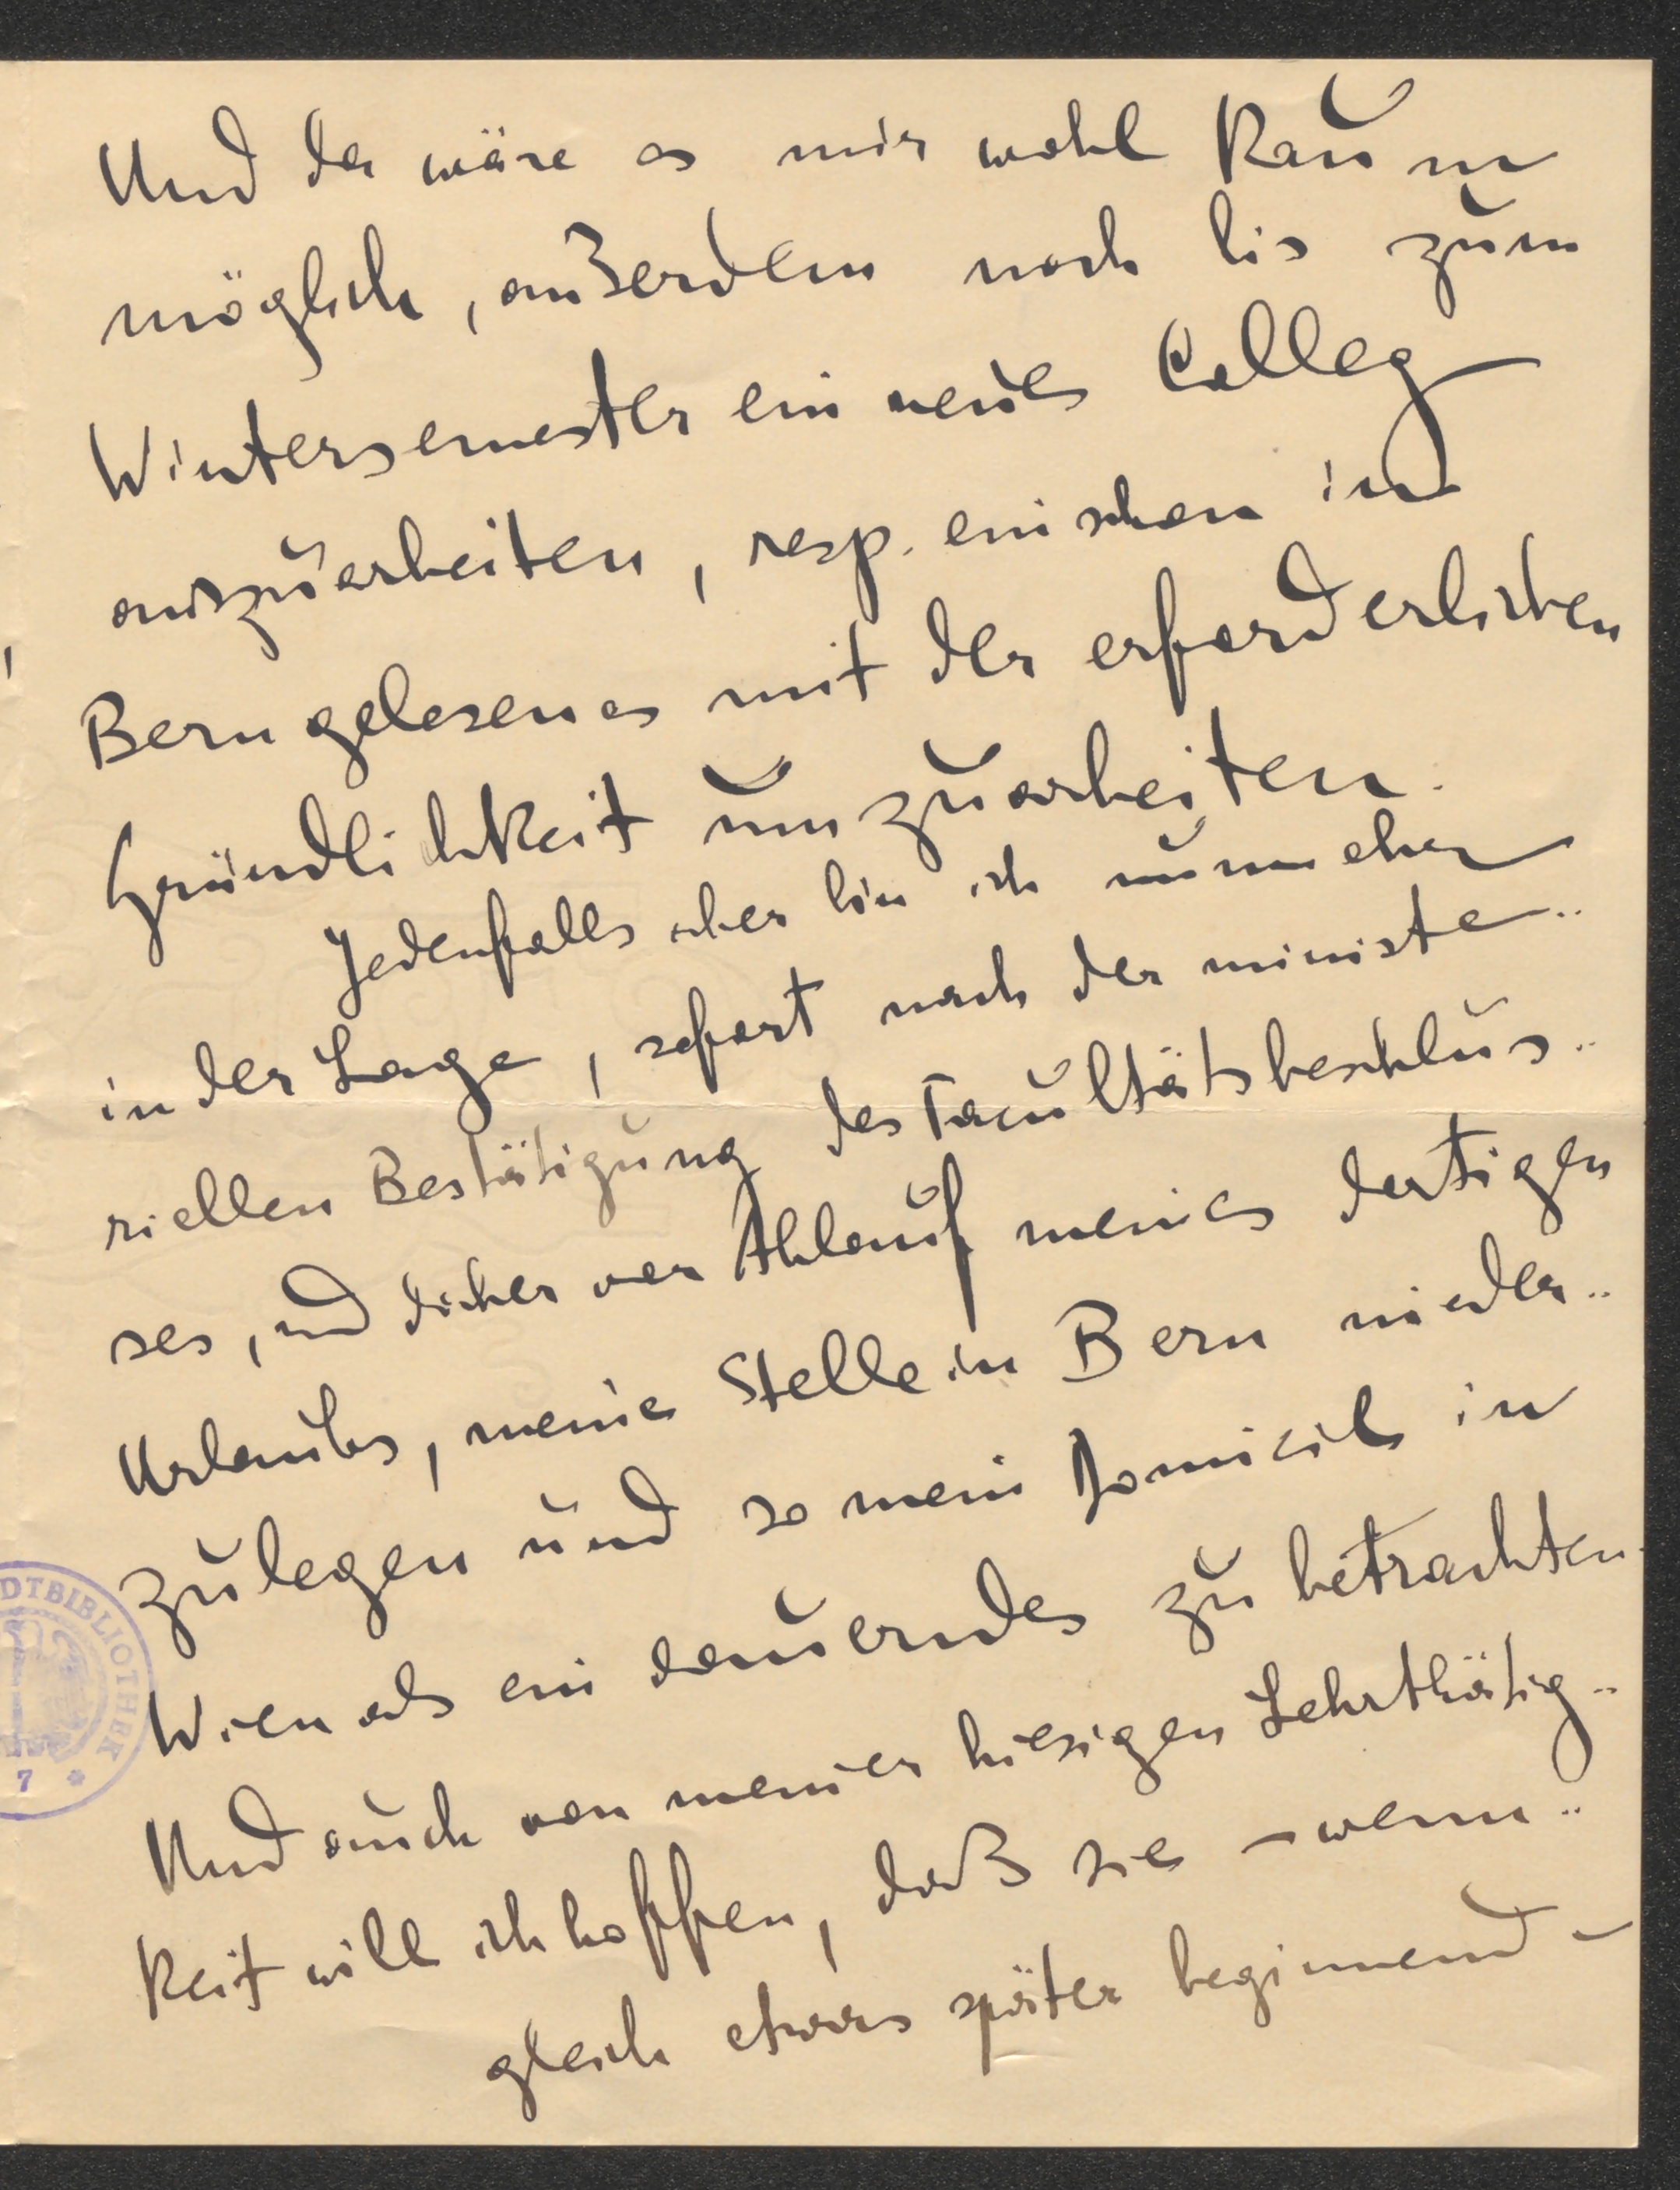 Und da wäre es mir wohl kaum
möglich, außerdem noch bis zum
Wintersemester ein neues Colleg
auszuarbeiten, resp. ein schon in
Bern gelesenes mit der erforderlichen
Gründlichkeit umzuarbeiten.
Jedenfalls aber bin ich nunmehr
in der Lage, sofort nach der ministe..
riellen Bestätigung des Facultätsbeschlus..
ses, und sicher vor Ablauf meines dortigen
Urlaubs, meine Stelle in Bern nieder..
zulegen und so mein Domicil in
Wien als ein dauerndes zu betrachten.
Und auch von meiner hiesigen Lehrthätig..
keit will ich hoffen, daß sie – wenn..
gleich etwas später beginnend –
DTBIBLIOTHEK
7 *